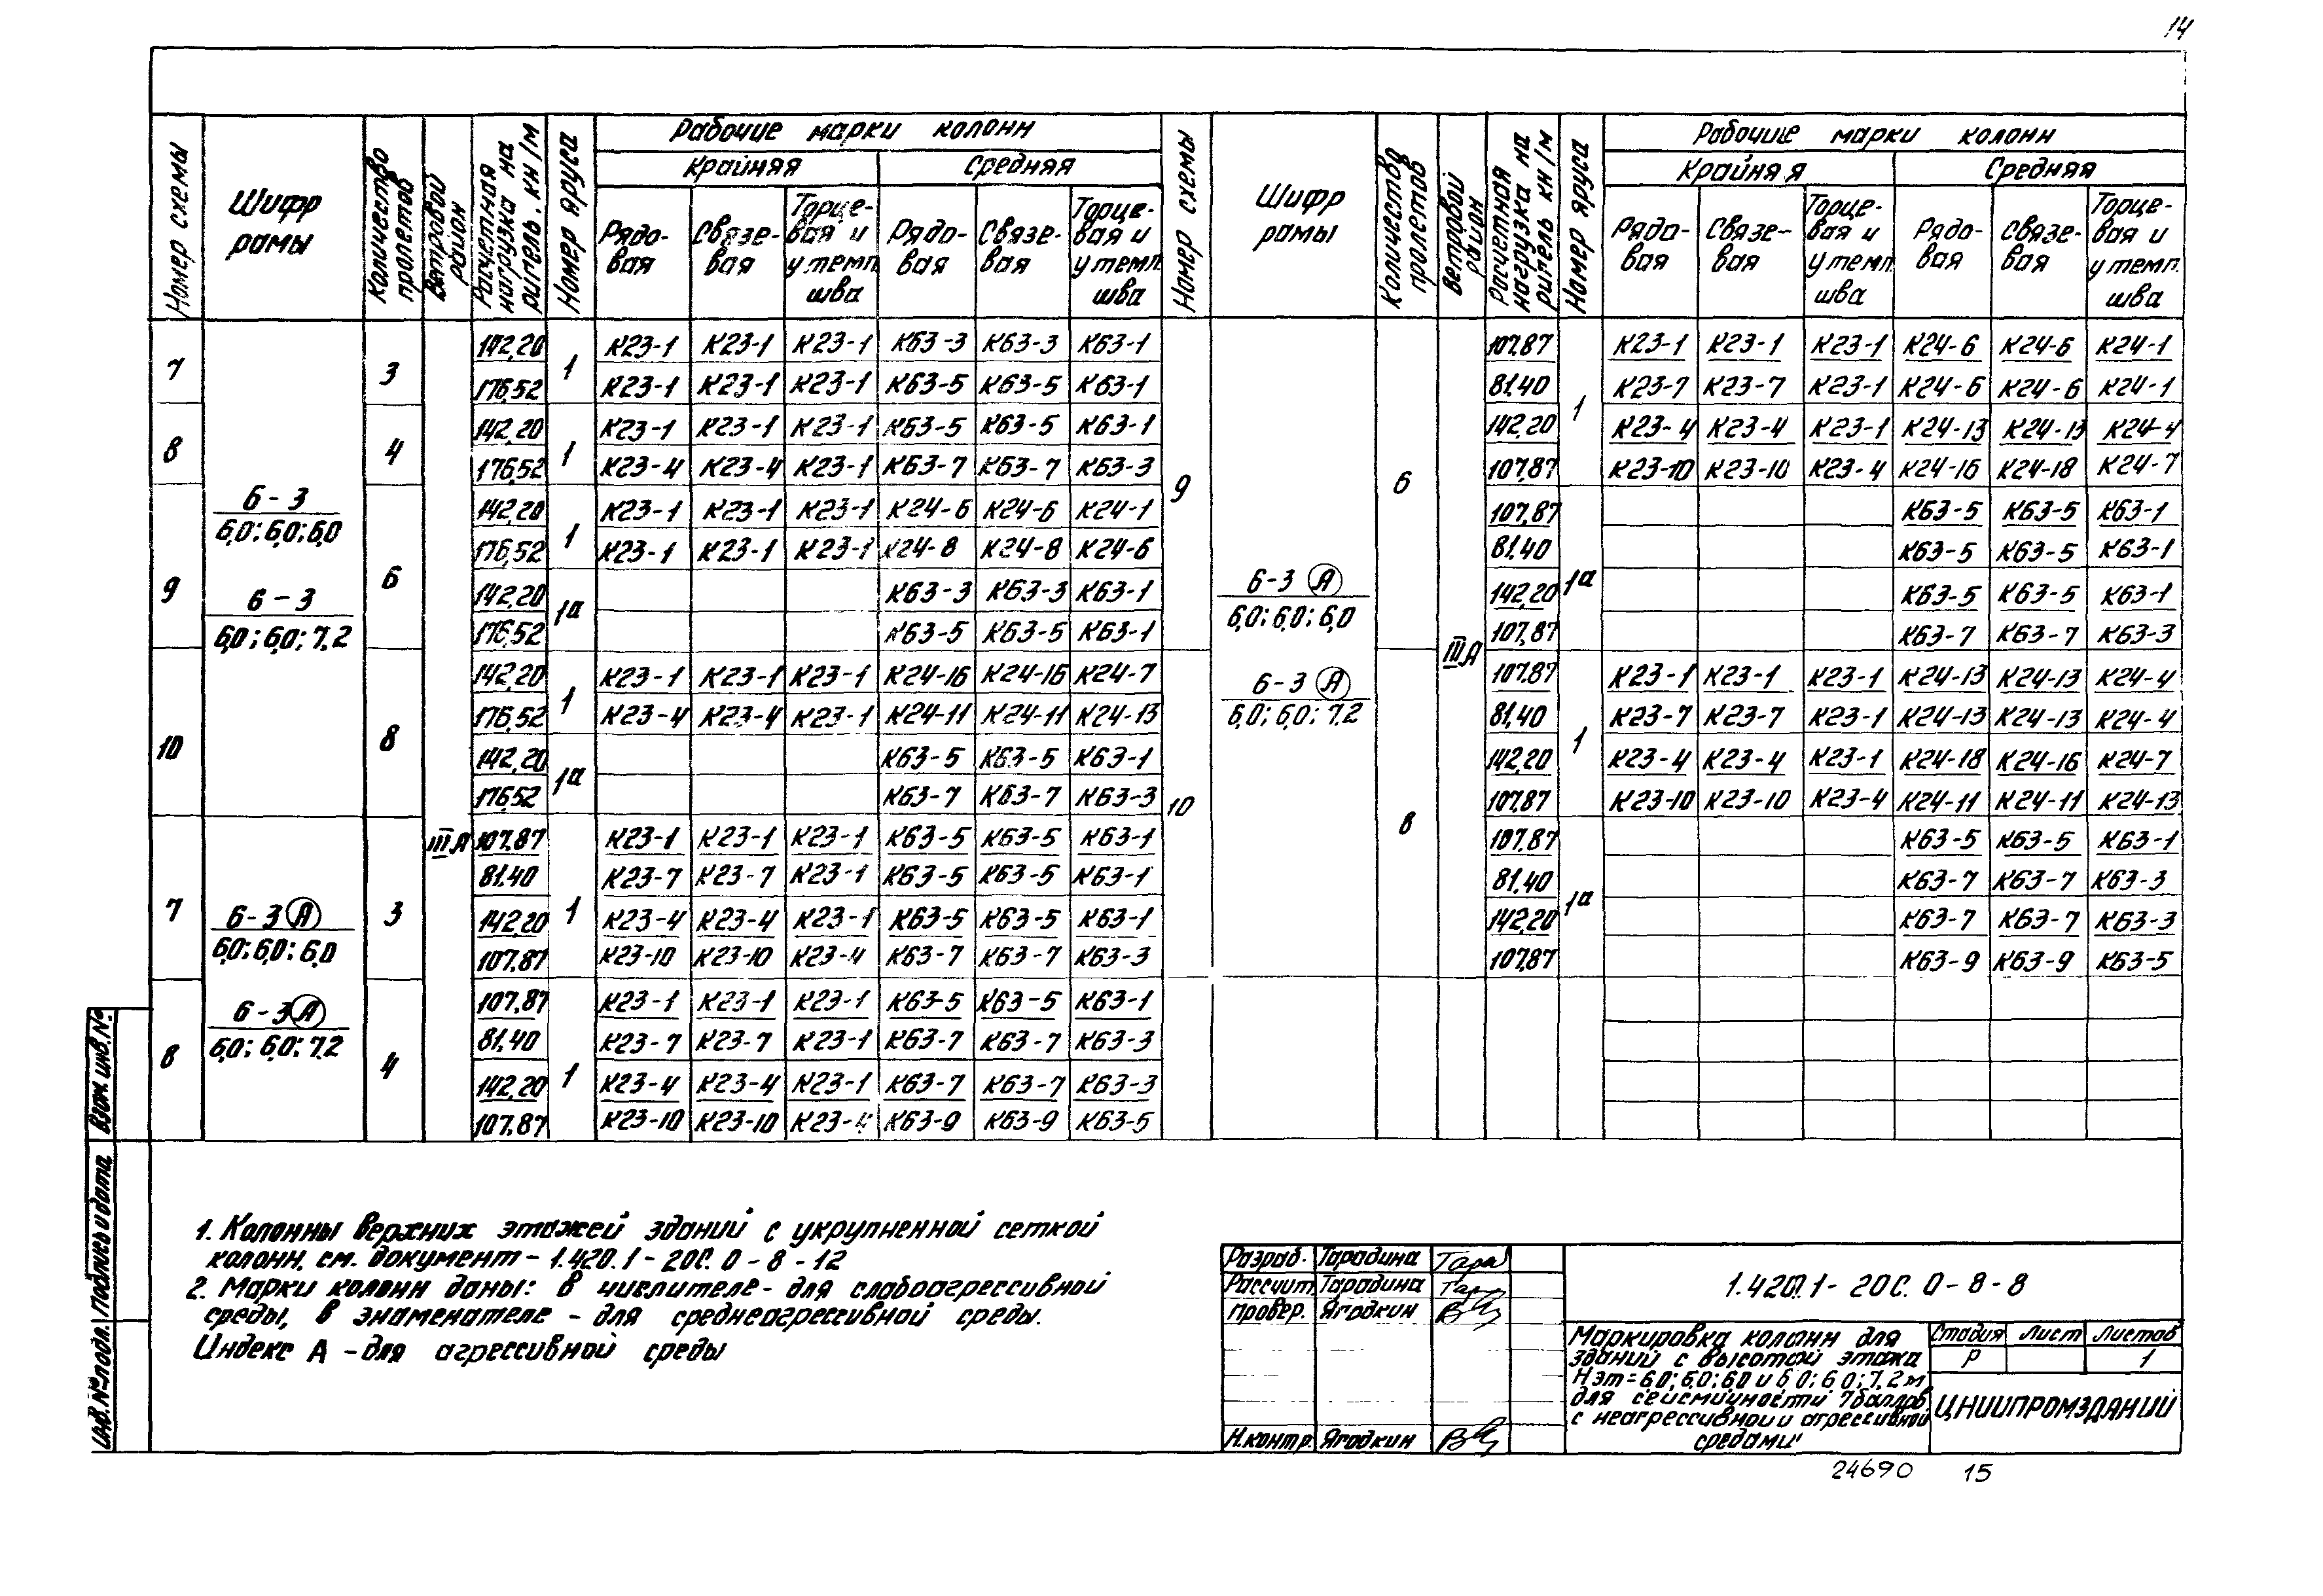 14
Номер схемы
Шифр рамы
Количество пролетов
Ветровой район
Расчетная нагрузка на ригель, кн/м
Номер яруса
Рабочие марки колонн
Крайняя
Средняя
Рядовая
Связевая
Торцевая и у темп. шва
Рядовая
Связевая
Торцевая и у темп. шва
7 3 142,20 1 К23-1 К23-1 К23-1 К63-3 К63-3 К63-1
176,52 К23-1 К23-1 К23-1 К63-5 К63-5 К63-1
8 4 142,20 1 К23-1 К23-1 К23-1 К63-5 К63-5 К63-1
176,52 К23-4 К23-4 К23-1 К63-7 К63-7 К63-3
6-3
6,0; 6,0; 6,0
6-3
6,0; 6,0; 7,2
9 6 142,20 1 К23-1 К23-1 К23-1 К24-6 К24-6 К24-1
176,52 К23-1 К23-1 К23-1 К24-8 К24-8 К24-6
142,20 1а К63-3 К63-3 К63-1
176,52 К63-5 К63-5 К63-1
10 8 142,20 1 К23-1 К23-1 К23-1 К24-16 К24-16 К24-7
176,52 К23-4 К23-4 К23-1 К24-11 К24-11 К24-13
142,20 1а К63-5 К63-5 К63-1
176,52 К63-7 К63-7 К63-3
IIIА
7 3 107,87 1 К23-1 К23-1 К23-1 К63-5 К63-5 К63-1
81,40 К23-7 К23-7 К23-1 К63-5 К63-5 К63-1
6-3 А
6,0; 6,0; 6,0
142,20 К23-4 К23-4 К23-1 К63-5 К63-5 К63-1
107,87 К23-10 К23-10 К23-4 К63-7 К63-7 К63-3
6-3 А
6,0; 6,0; 7,2
8 4 107,87 1 К23-1 К23-1 К23-1 К63-5 К63-5 К63-1
81,40 К23-7 К23-7 К23-1 К63-7 К63-7 К63-3
142,20 К23-4 К23-4 К23-1 К63-7 К63-7 К63-3
107,87 К23-10 К23-10 К23-4 К63-9 К63-9 К63-5
Номер схемы
Шифр рамы
Количество пролетов
Ветровой район
Расчетная нагрузка на ригель кн/м
Номер яруса
Рабочие марки колонн
Крайняя
Средняя
Рядовая
Связевая
Торцевая и у темп. шва
Рядовая
Связевая
Торцевая и у темп. шва
9 6 107,87 1 К23-1 К23-1 К23-1 К24-6 К24-6 К24-1
81,40 К23-7 К23-7 К23-1 К24-6 К24-6 К24-1
142,20 К23-4 К23-4 К23-1 К24-13 К24-13 К24-4
107,87 К23-10 К23-10 К23-4 К24-16 К24-18 К24-7
107,87 1а К63-5 К63-5 К63-1
81,40 К63-5 К63-5 К63-1
6-3 А
6,0; 6,0; 6,0
142,20 К63-5 К63-5 К63-1
107,87 К63-7 К63-7 К63-3
IIIА
6-3 А
6,0; 6,0; 7,2
10 8 107,87 1 К23-1 К23-1 К23-1 К24-13 К24-13 К24-4
81,40 К23-7 К23-7 К23-1 К24-13 К24-13 К24-4
142,20 К23-4 К23-4 К23-1 К24-18 К24-16 К24-7
107,87 К23-10 К23-10 К23-4 К24-11 К24-11 К24-13
107,87 1а К63-5 К63-5 К63-1
81,40 К63-7 К63-7 К63-3
142,20 К63-7 К63-7 К63-3
107,87 К63-9 К63-9 К63-5
1. Колонны верхних этажей зданий с укрупненной сеткой
колонн. см. документ - 1.420.1-20С. 0-8-12
2. Марки колонн даны: в числителе - для слабоагрессивной
среды, в знаменателе - для среднеагрессивной среды.
Индекс А - для агрессивной среды
Инв.№подл. Подпись и дата Взам. инв.№
Разраб. Тарадина Тара
Рассчит. Тарадина Тара
Провер. Ягодкин
Н.контр. Ягодкин
1.420.1-20С. 0-8-8
Маркировка колонн для
зданий с высотой этажа
Нэт=6,0; 6,0; 6,0 и 6,0; 6,0; 7,2м
для сейсмичности 7баллов
с неагрессивной и агрессивной
средами
Стадия Лист Листов
Р 1
ЦНИИПРОМЗДАНИЙ
24690 15